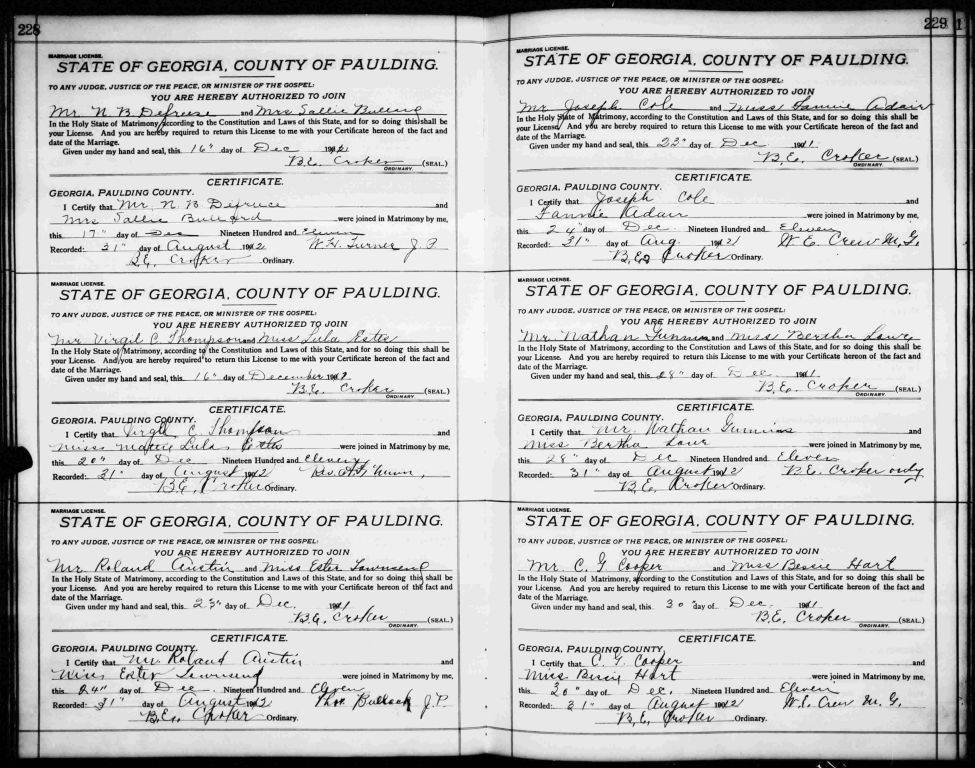 228
MARRIAGE LICENSE.
STATE OF GEORGIA, COUNTY OF PAULDING.
TO ANY JUDGE, JUSTICE OF THE PEACE, OR MINISTER OF THE GOSPEL:
YOU ARE HEREBY AUTHORIZED TO JOIN
Mr. N. B. and Mrs Sallie
In the Holy State of Matrimony, according to the Constitution and Laws of this State, and for so doing this shall be
your License. And you are hereby required to return this License to me with your Certificate hereon of the fact and
date of the Marriage.
Given under my hand and seal, this 16" day of Dec 191
B.E. Croker (SEAL.)
ORDINARY.
CERTIFICATE.
GEORGIA, PAULDING COUNTY.
I Certify that Mr. N B and
Mrs Sallie were joined in Matrimony by me,
this 17" day of Dec Nineteen Hundred and Eleven
Recorded: 31" day of August 1912 W.H. Turner J.P
B.E. Croker Ordinary.
MARRIAGE LICENSE.
STATE OF GEORGIA, COUNTY OF PAULDING.
TO ANY JUDGE, JUSTICE OF THE PEACE, OR MINISTER OF THE GOSPEL:
YOU ARE HEREBY AUTHORIZED TO JOIN
Mr Virgil C Thompson and Miss Lula Estes
In the Holy State of Matrimony, according to the Constitution and Laws of this State, and for so doing this shall be
your License. And you are hereby required to return this License to me with your Certificate hereon of the fact and
date of the Marriage.
Given under my hand and seal, this 16" day of December 191
B.E. Croker (SEAL)
ORDINARY.
CERTIFICATE.
GEORGIA, PAULDING COUNTY.
I Certify that Virgil C. Thompson and
Miss Lula Estes were joined in Matrimony by me,
this 20" day of Dec Nineteen Hundred and Eleven
Recorded: 31" day of August 1912 Rev.
B.E. Croker Ordinary.
MARRIAGE LICENSE.
STATE OF GEORGIA, COUNTY OF PAULDING.
TO ANY JUDGE, JUSTICE OF THE PEACE, OR MINISTER OF THE GOSPEL:
YOU ARE HEREBY AUTHORIZED TO JOIN
Mr. Roland Austin and Miss Ester Townsend
In the Holy State of Matrimony, according to the Constitution and Laws of this State, and for so doing this shall be
your License. And you are hereby required to return this License to me with your Certificate hereon of the fact and
date of the Marriage.
Given under my hand and seal, this 23" day of Dec. 1911
B.E. Croker (SEAL)
ORDINARY.
CERTIFICATE.
GEORGIA, PAULDING COUNTY.
I Certify that Mr Roland Austin and
Miss Ester Townsend were joined in Matrimony by me,
this 24" day of Dec Nineteen Hundred and Eleven
Recorded: 31" day of August 1912 Thos. Bullock J.P.
B.E. Croker Ordinary.
229
1
MARRIAGE LICENSE.
STATE OF GEORGIA, COUNTY OF PAULDING.
TO ANY JUDGE, JUSTICE OF THE PEACE, OR MINISTER OF THE GOSPEL:
YOU ARE HEREBY AUTHORIZED TO JOIN
Mr Joseph Cole and Miss Fannie Adair
In the Holy State of Matrimony, according to the Constitution and Laws of this State, and for so doing this shall be
your License. And you are hereby required to return this License to me with your Certificate hereon of the fact and
date of the Marriage.
Given under my hand and seal, this 23" day of Dec 1911
B.E. Croker (SEAL.)
ORDINARY.
CERTIFICATE.
GEORGIA, PAULDING COUNTY.
I Certify that Joseph Cole and
Fannie Adair were joined in Matrimony by me,
this 24" day of Dec. Nineteen Hundred and Eleven
Recorded: 31" day of Aug. 1912 W.E. Crew M.G.
B.E. Croker Ordinary.
MARRIAGE LICENSE.
STATE OF GEORGIA, COUNTY OF PAULDING.
TO ANY JUDGE, JUSTICE OF THE PEACE, OR MINISTER OF THE GOSPEL:
YOU ARE HEREBY AUTHORIZED TO JOIN
Mr. Nathan and Miss Bertha
In the Holy State of Matrimony, according to the Constitution and Laws of this State, and for so doing this shall be
your License. And you are hereby required to return this License to me with your Certificate hereon of the fact and
date of the Marriage.
Given under my hand and seal, this 28" day of Dec 1911
B.E. Croker (SEAL)
ORDINARY.
CERTIFICATE.
GEORGIA, PAULDING COUNTY.
I Certify that Mr. Nathan and
Miss Bertha were joined in Matrimony by me,
this 28" day of Dec Nineteen Hundred and Eleven
Recorded: 31" day of August 1912 B.E. Croker ordy
B.E. Croker Ordinary.
MARRIAGE LICENSE.
STATE OF GEORGIA, COUNTY OF PAULDING.
TO ANY JUDGE, JUSTICE OF THE PEACE, OR MINISTER OF THE GOSPEL:
YOU ARE HEREBY AUTHORIZED TO JOIN
Mr. C. G Cooper and Miss Bessie Hart
In the Holy State of Matrimony, according to the Constitution and Laws of this State, and for so doing this shall be
your License. And you are hereby required to return this License to me with your Certificate hereon of the fact and
date of the Marriage.
Given under my hand and seal, this 30" day of Dec. 1911
B.E. Croker (SEAL)
ORDINARY.
CERTIFICATE.
GEORGIA, PAULDING COUNTY.
I Certify that C. G. Cooper and
Miss Hart were joined in Matrimony by me,
this day of Dec. Nineteen Hundred and Eleven
Recorded: 31" day of August 1912 W.E. Crew M.G.
B.E. Croker Ordinary.